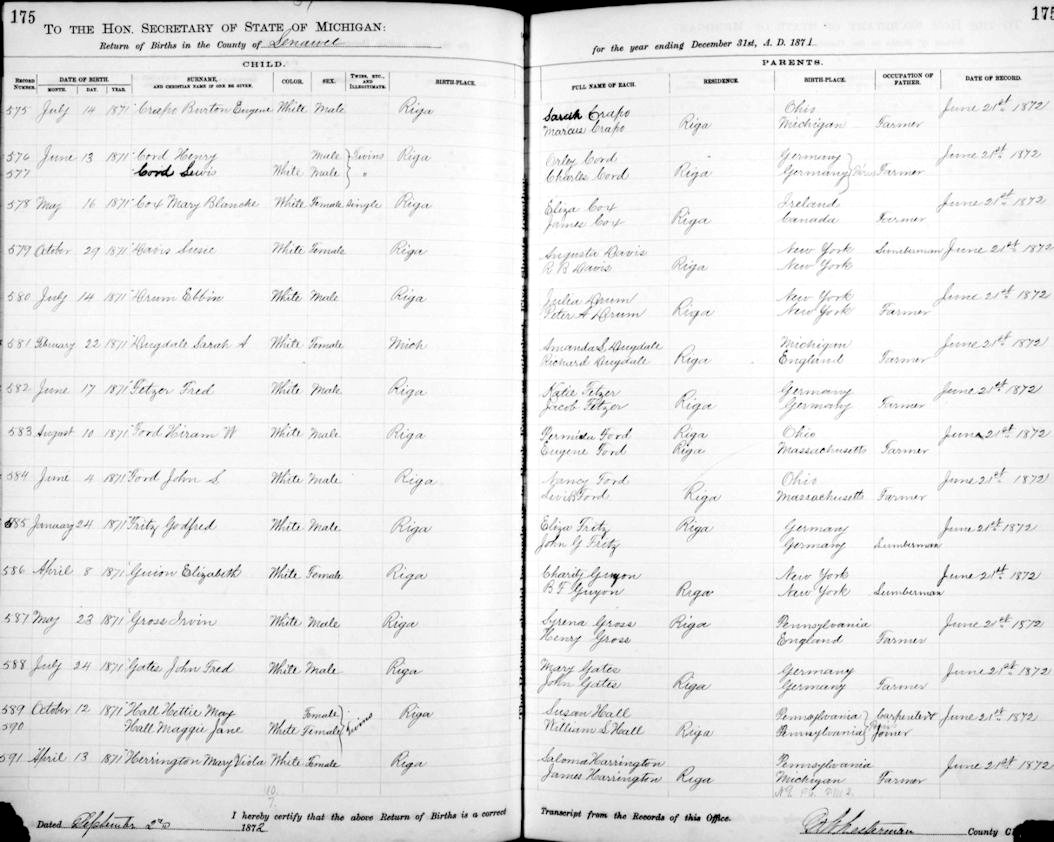 175
TO THE HON. SECRETARY OF STATE OF MICHIGAN:
Return of Births in the County of Lenawee
CHILD.
RECORD NUMBER. DATE OF BIRTH. MONTH. DAY. YEAR. SURNAME, AND CHRISTIAN NAME IF ONE BE GIVEN. COLOR. SEX. TWINS, ETC., AND ILLEGITIMATE. BIRTH-PLACE.
575 July 14 1871 Crapo Burton Eugene White Male Riga
576 June 13 1871 Cord Henry Male Twins Riga
577 Cord Lewis White Male "
578 May 16 1871 Cox Mary Blanche White Female Single Riga
579 October 29 1871 Davis Susie White Female Riga
580 July 14 1871 Drum Ebbin White Male Riga
581 February 22 1871 Dugdale Sarah A White Female Mich
582 June 17 1871 Fetzer Fred White Male Riga
583 August 10 1871 Ford Hiram W White Male Riga
584 June 4 1871 Ford John S White Male Riga
585 January 24 1871 Fritz Godfred White Male Riga
586 April 8 1871 Guion Elizabeth White Female Riga
587 May 23 1871 Gross Irvin White Male Riga
588 July 24 1871 Gates John Fred White Male Riga
589 October 12 1871 Hall Hettie May Female Twins Riga
590 Hall Maggie Jane White Female
591 April 13 1871 Herrington Mary Viola White Female Riga
10
7
I hereby certify that the above Return of Births is a correct
Dated September 2nd 1872
175
for the year ending December 31st, A. D. 1871
PARENTS.
FULL NAME OF EACH. RESIDENCE. BIRTH-PLACE. OCCUPATION OF FATHER. DATE OF RECORD.
Sarah Crapo Ohio June 21st 1872
Marcus Crapo Riga Michigan Farmer
Orley Cord Germany June 21st 1872
Charles Cord Riga Germany Farmer
Eliza Cox Ireland June 21st 1872
James Cox Riga Canada Farmer
Augusta Davis New York Lumberman June 21st 1872
R B Davis Riga New York
Julia Drum New York June 21st 1872
Peter A Drum Riga New York Farmer
Amanda S Dugdale Michigan June 21st 1872
Richard Dugdale Riga England Farmer
Katie Fetzer Germany June 21st 1872
Jacob Fetzer Riga Germany Farmer
Permida Ford Riga Ohio June 21st 1872
Eugene Ford Riga Massachusetts Farmer
Nancy Ford Ohio June 21st 1872
Levi B Ford Riga Massachusetts Farmer
Eliza Fritz Riga Germany June 21st 1872
John G Fritz Germany Lumberman
Charity Guyon New York June 21st 1872
B F Guyon Riga New York Lumberman
Syrena Gross Riga Pennsylvania June 21st 1872
Henry Gross England Farmer
Mary Gates Germany June 21st 1872
John Gates Riga Germany Farmer
Susan Hall Pennsylvania Carpenter & June 21st 1872
William S Hall Riga Pennsylvania Joiner
Saloma Harrington Pennsylvania June 21st 1872
James Harrington Riga Michigan Farmer
Transcript from the Records of this Office.
County Cl